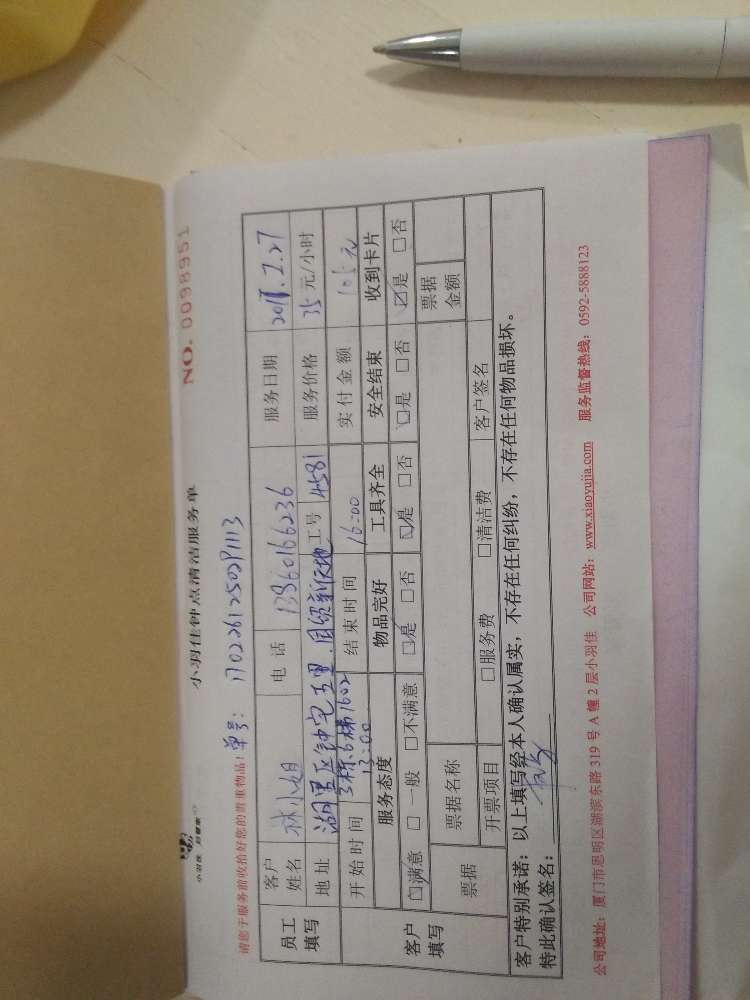 小羽佳 好管家
小羽佳钟点清洁服务单
NO. 0098951
请您于服务前收拾好您的贵重物品!
单号: 1702261250291113
员工填写
客户姓名 林小姐 电话 13960166236 服务日期 2017.2.27
地址 湖里区钟宅五里 新天地 3栋6梯1602 工号 4581 服务价格 35 元/小时
开始时间 13:00 结束时间 16:00 实付金额 105元
客户填写
服务态度 物品完好 工具齐全 安全结束 收到卡片
☑满意 □一般 □不满意 ☑是 □否 ☑是 □否 ☑是 □否 ☑是 □否
票据 票据名称 票据金额
开票项目 □服务费 □清洁费 客户签名
客户特别承诺：以上填写经本人确认属实，不存在任何纠纷，不存在任何物品损坏。
特此确认签名：
公司地址：厦门市思明区湖滨东路 319 号 A 幢 2 层小羽佳 公司网站：www.xiaoyujia.com 服务监督热线：0592-5888123